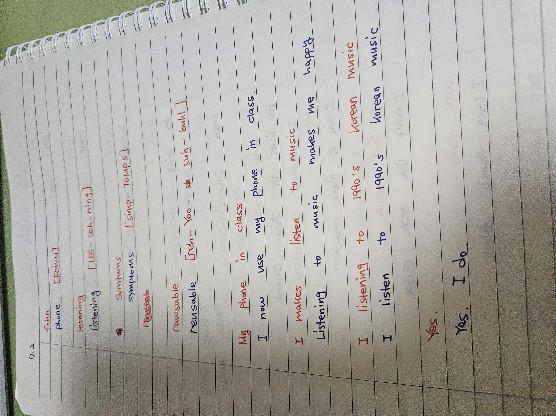 phone [FOWN]
listening
listening [LIS-suh-ning]
symtums
symptoms [simp-TOMPS]
reausable
reusable [ree-Yoo suh-buhl]
My phone in class
I now use my phone in class.
I makes listen to music
Listening to music makes me happy
I listening to 1990's korean music
I listen to 1990's korean music
Yes.
Yes, I do.